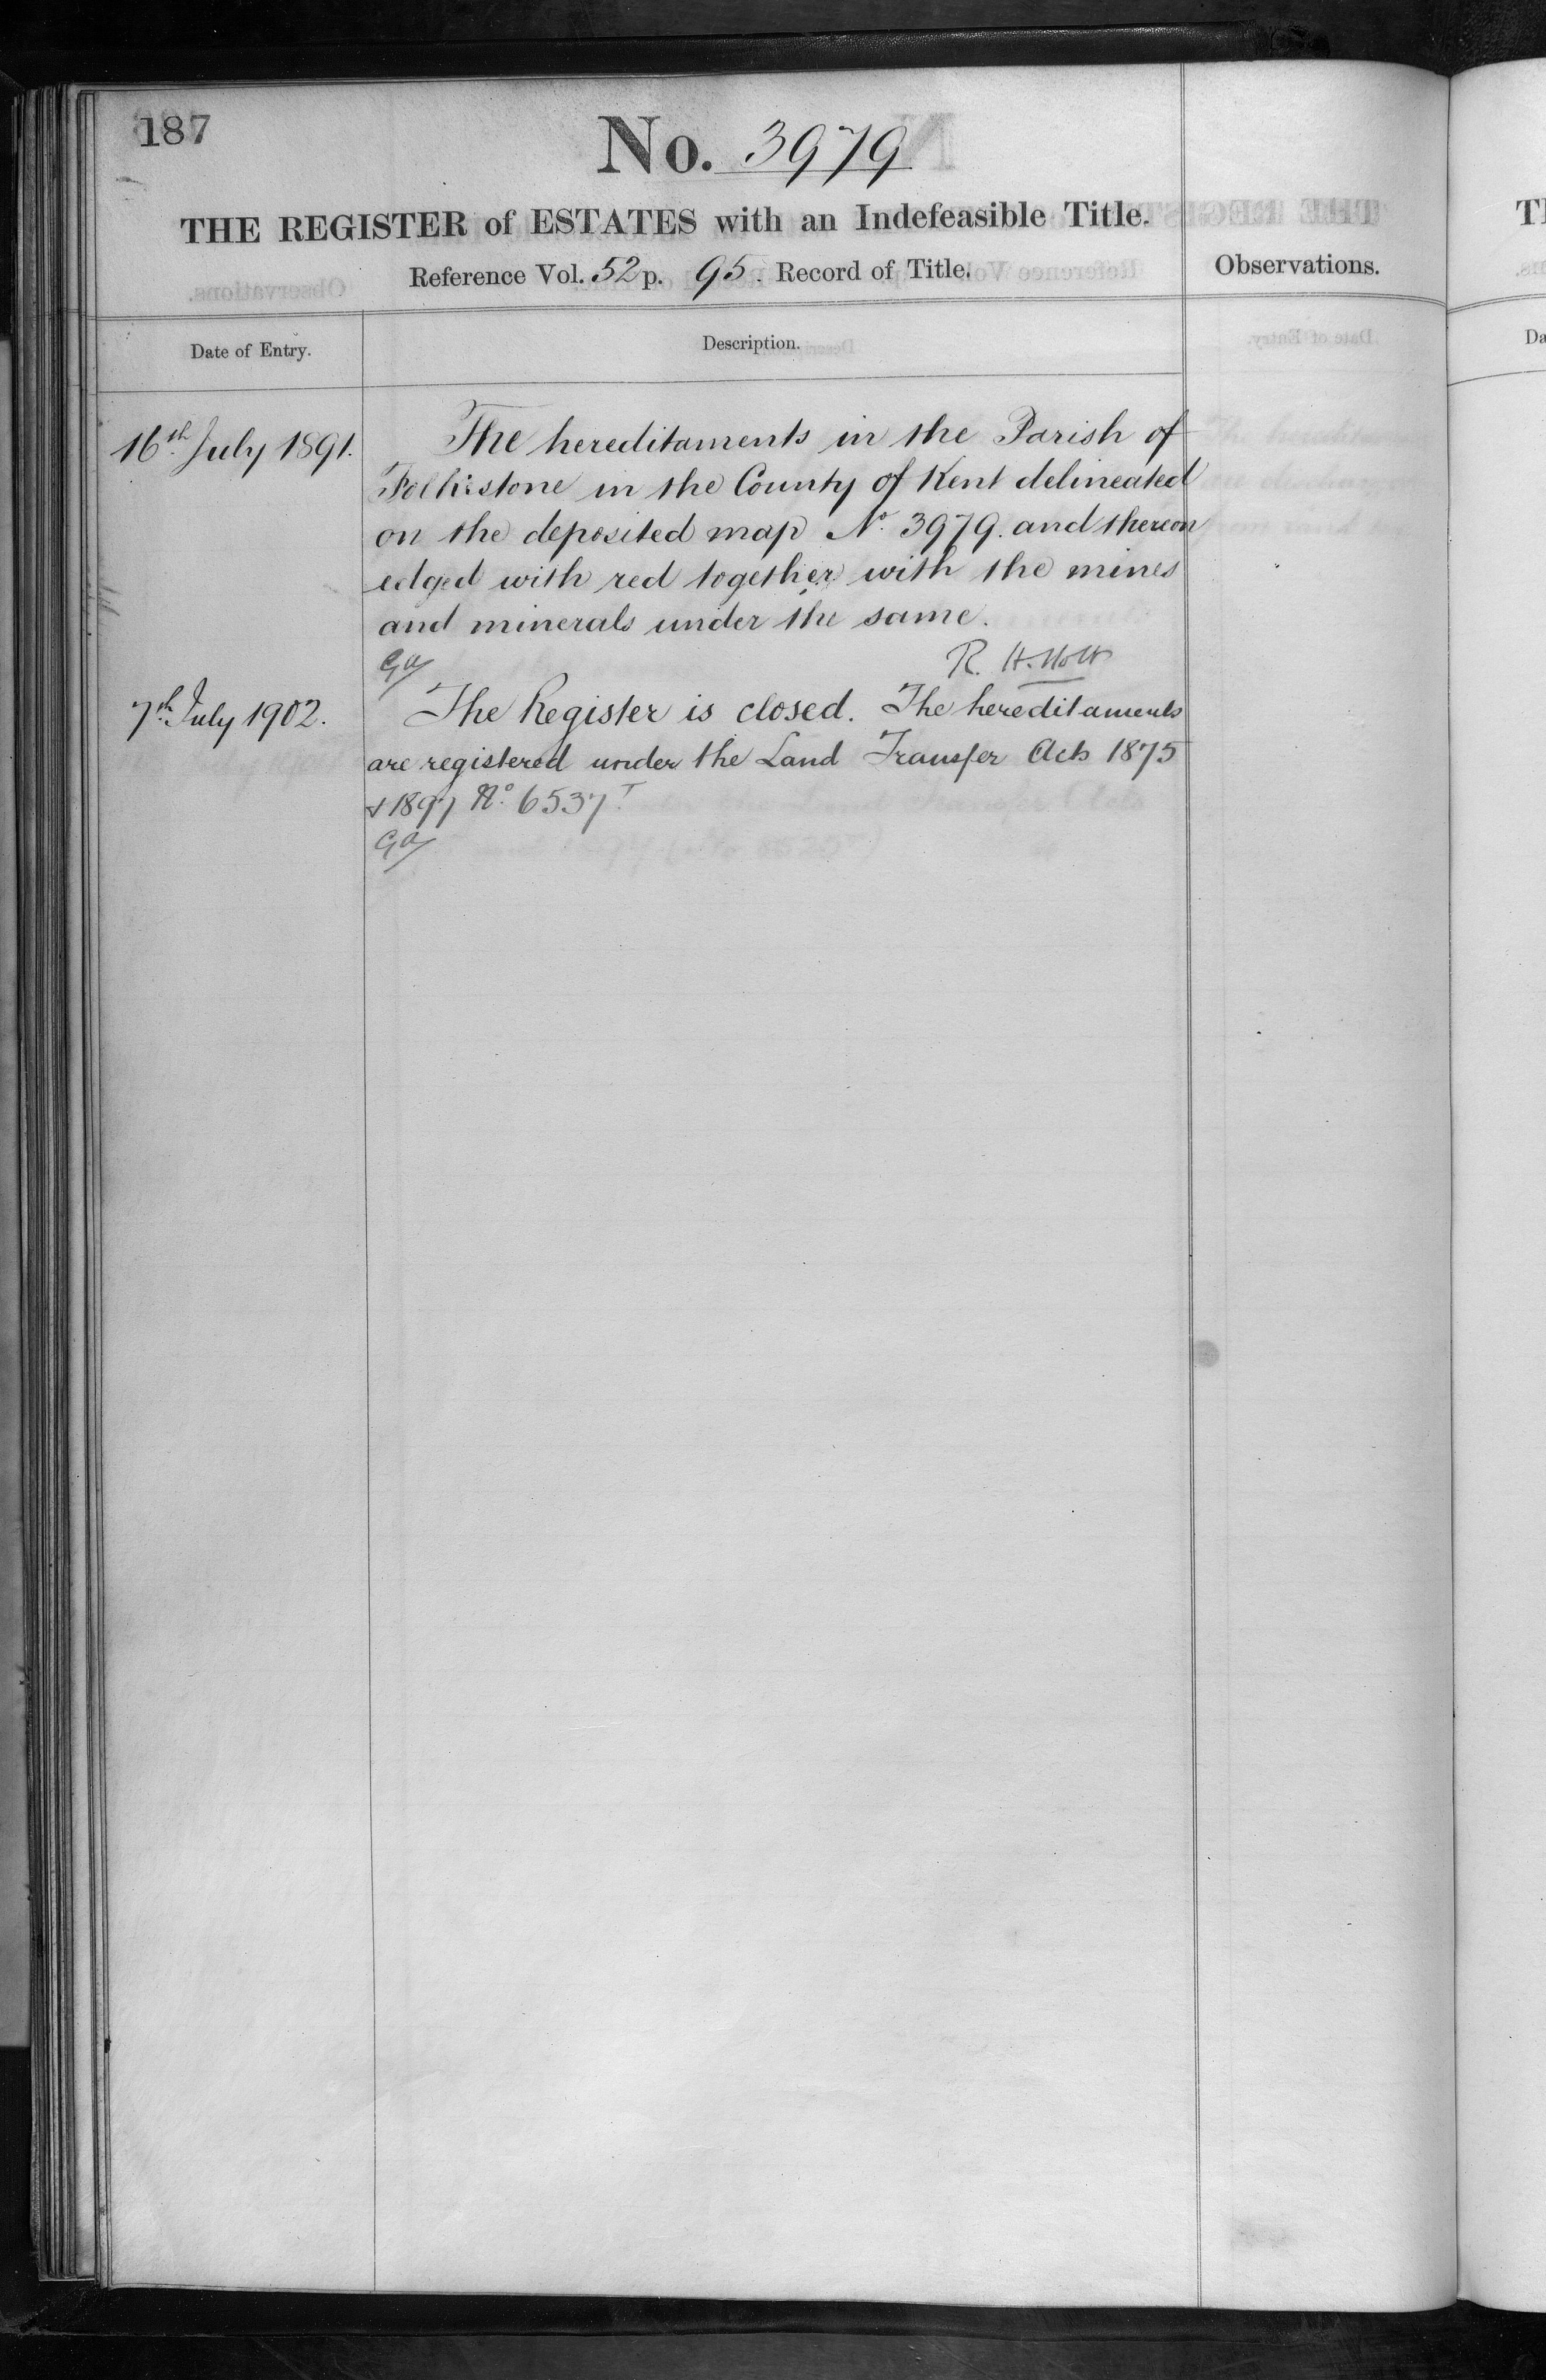 187
No. 3979
THE REGISTER of ESTATES with an Indefeasible Title.
Reference Vol. 52 p. 95. Record of Title.
Observations.
Date of Entry.
Description.
16th July 1891.
The hereditaments in the Parish of
Folkestone in the County of Kent delineated
on the deposited map No. 3979. and thereon
edged with red together with the mines
and minerals under the same.
R. H. Holt
7th July 1902.
The Register is closed. The hereditaments
are registered under the Land Transfer Acts 1875
& 1897 No. 6537T